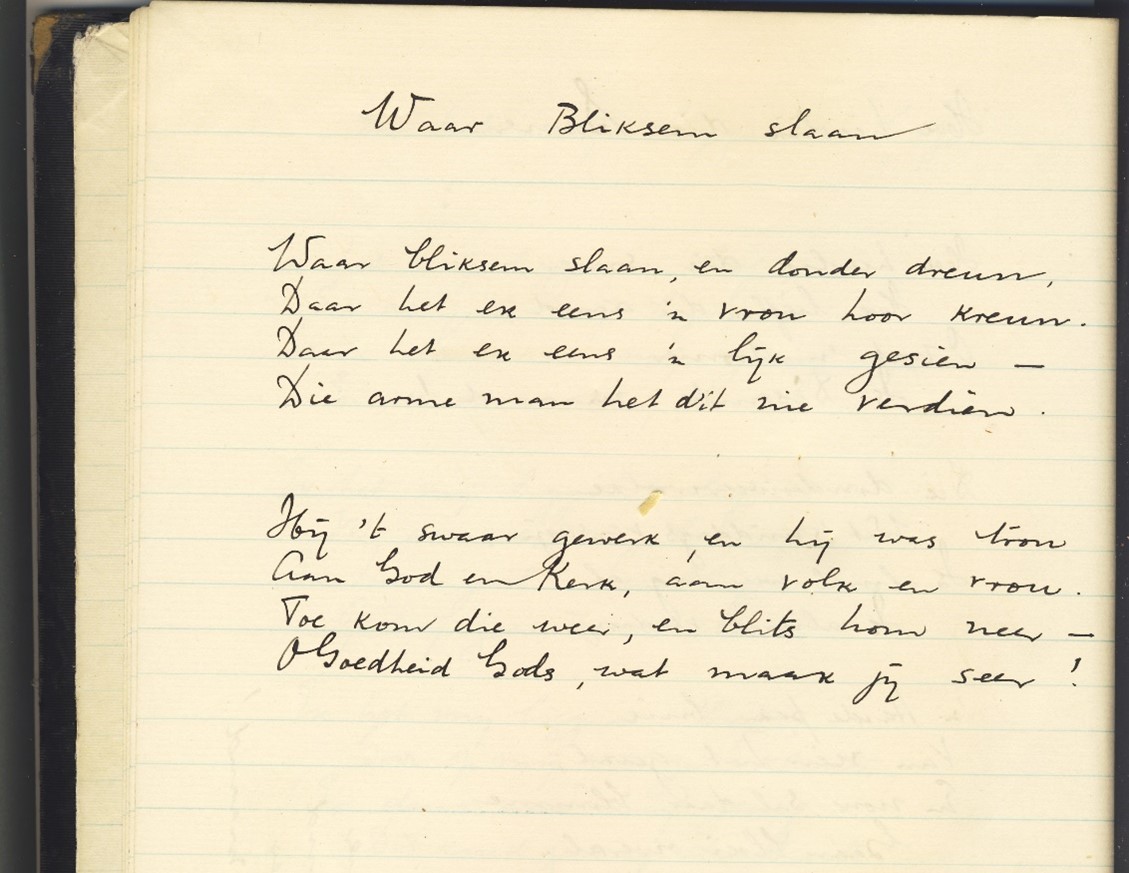 Waar Bliksem slaan
Waar bliksem slaan, en donder dreun,
Daar het ek eens 'n vrou hoor kreun.
Daar het ek eens 'n lijk gesien —
Die arme man het dit nie verdien.
Hij 't swaar gewerk, en hij was trou
Aan God en Kerk, aan volk en vrou.
Toe kom die weer, en blits hom neer —
O Goedheid Gods, wat maak jij seer!